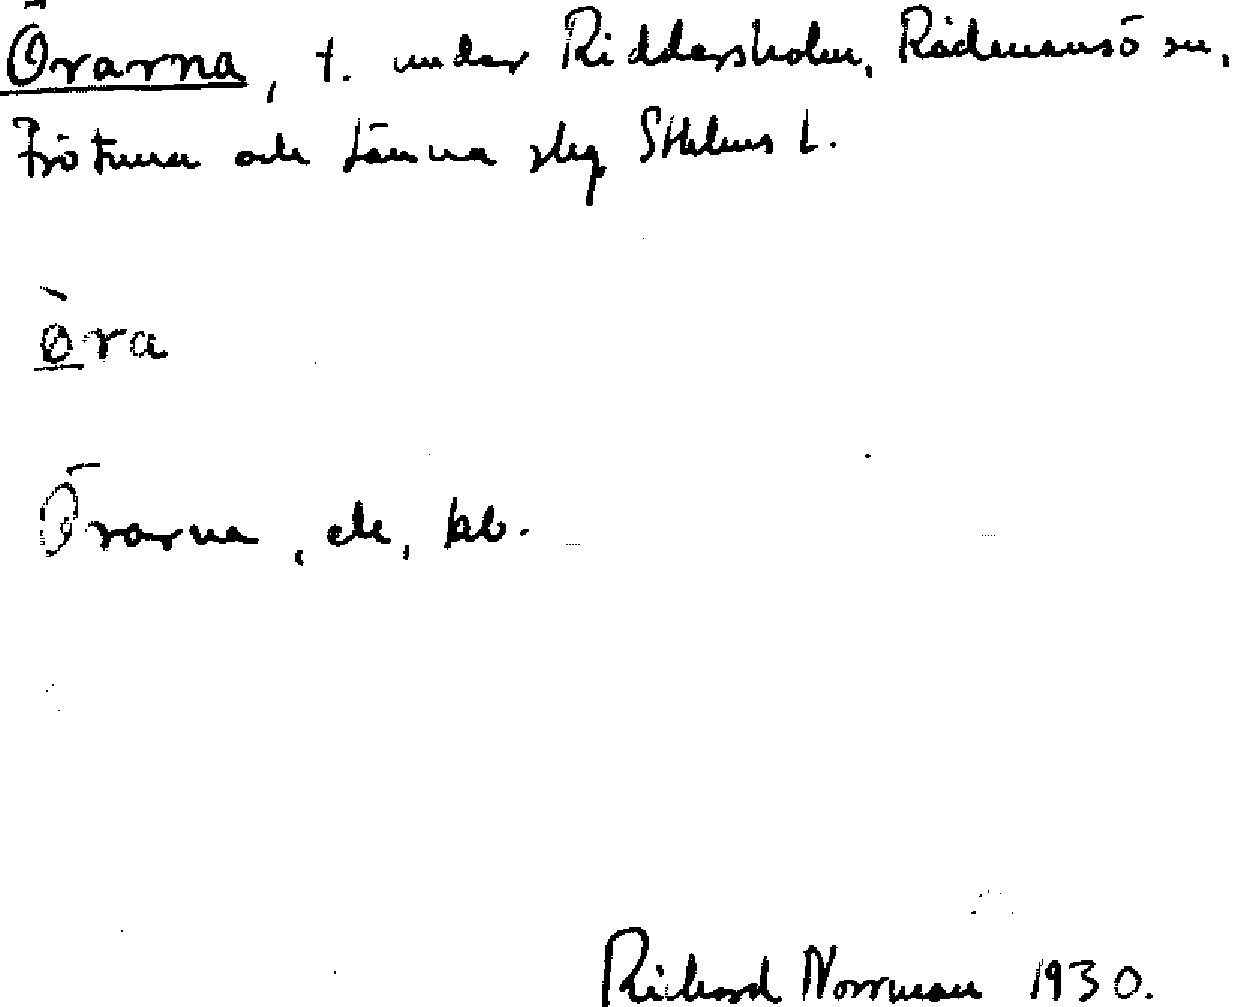 Örarna, t. under Riddersholm, Rådmansö sn,
Frötuna och Länna slg Sthlms l.
ö̀ra
Örarna, ek, bb.
Richard Norrman 1930.